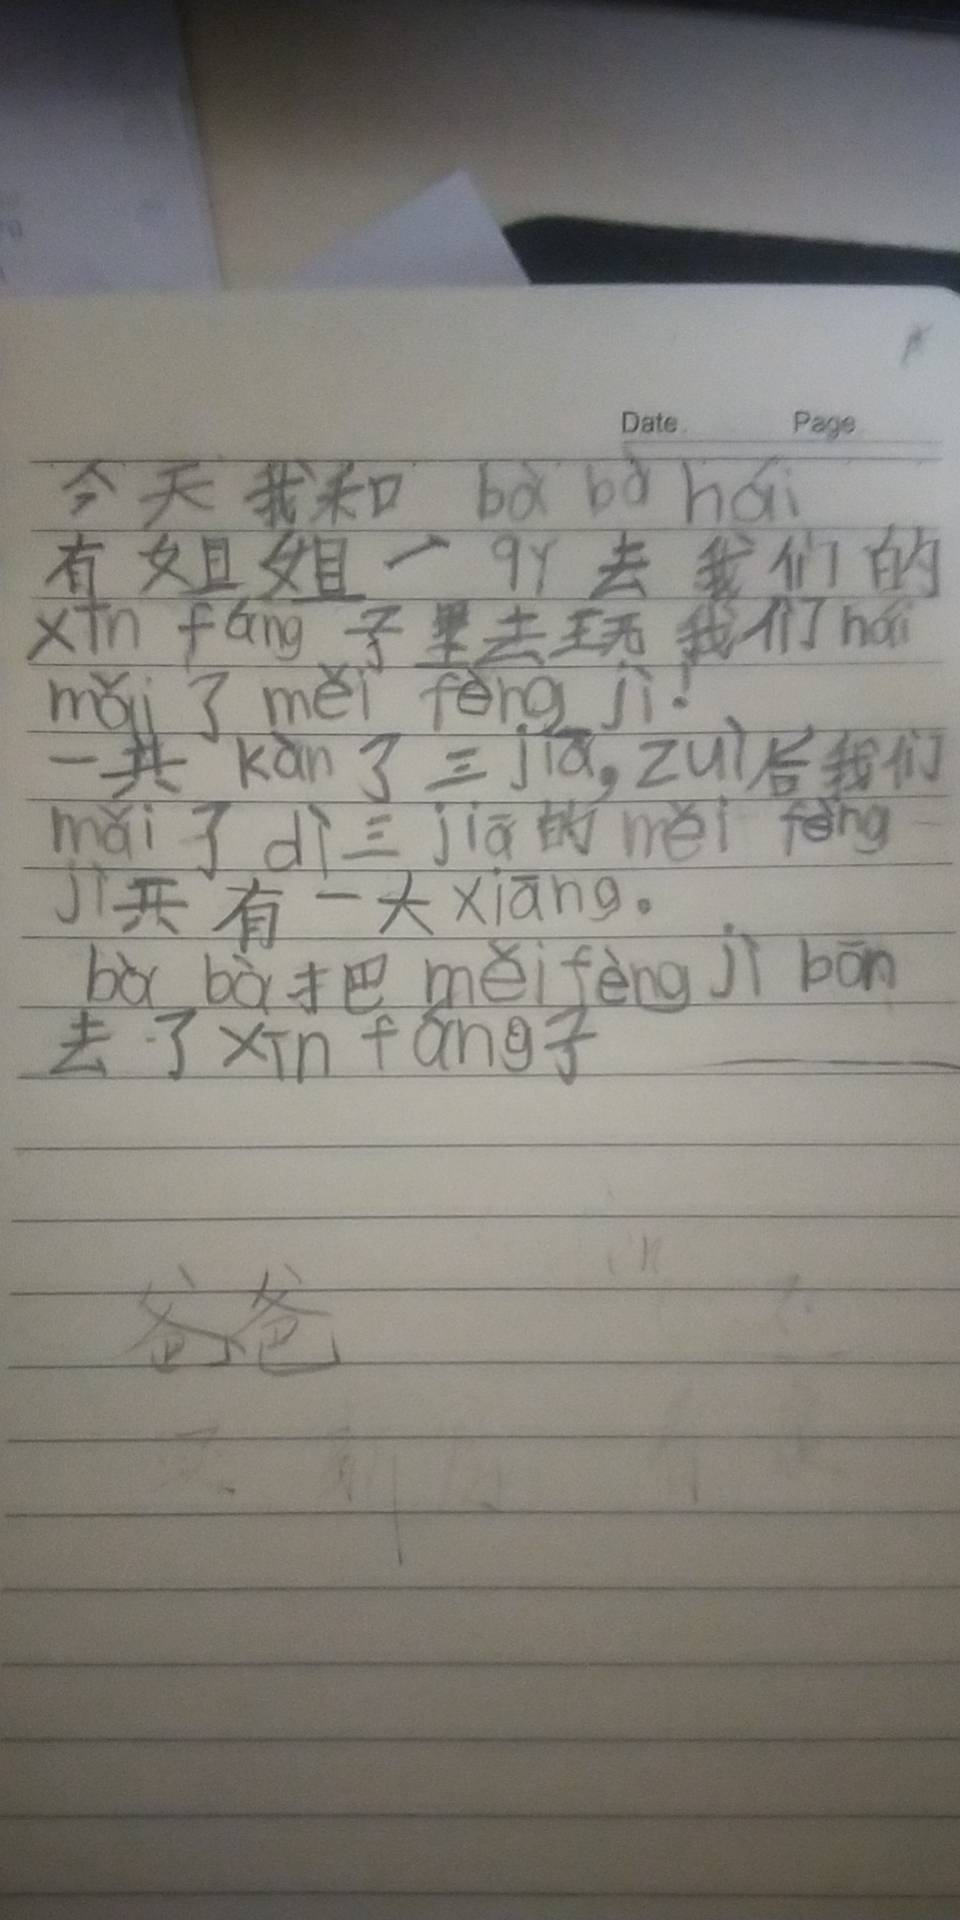 Date. Page
今天我和 bà bà hái
有姐姐一 qy 去我们的
xīn fáng 子里去玩我们 hái
mǎi 了 měi fèng jì!
一共 kàn 了三 jiā, zuì 后我们
mǎi 了 dì 三 jiā 的 měi fèng
jì 共有一大 xiāng。
bà bà 把 měi fèng jì bān
去了 xīn fáng 子
爸爸